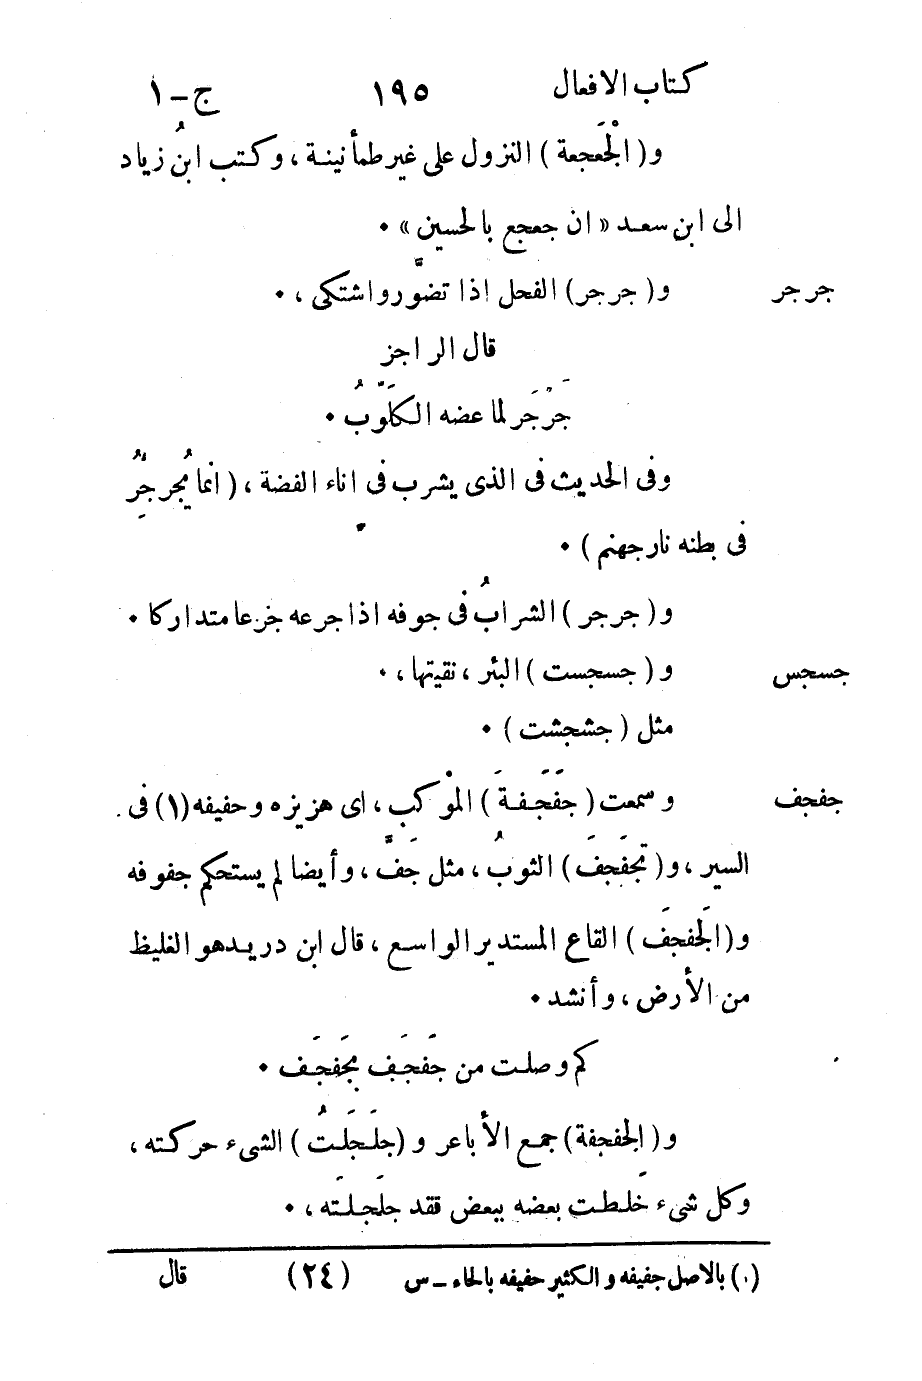 كتاب الافعال ١٩٥ ج-١
و(الْجَعجعة) النزول على غير طمأنينة، وكتب ابنُ زياد
الى ابن سعد «ان جعجع بالحسين»٠
جرجر و(جرجر) الفحل اذا تضوَّر واشتكى،٠
قال الراجز
جَرْجَر لما عضه الكَلّوبُ٠
وفى الحديث فى الذى يشرب فى اناء الفضة، (انما يُجرجِرُ
فى بطنه نار جهنم)٠
و(جرجر) الشرابُ فى جوفه اذا جرعه جرعا متداركا٠
جسجس و(جسجست) البئر، نقيتها،٠
مثل (جشجشت)٠
جفجف وسمعت (جَفجَفة) الموْكب، اى هزيزه وحفيفه(١) فى
السير، و(تجَفجَفَ) الثوبُ، مثل جَفَّ، وأيضا لم يستحكم جفوفه
و(الجَفجَف) القاع المستدير الواسع، قال ابن دريد هو الغليظ
من الأرض، وأنشد٠
كم وصلت من جَفجَف بجَفجَف٠
و(الجفجفة) جمع الأباعر و(جلَجلَتُ) الشىء حركته،
وكل شىء خَلطت بعضه ببعض فقد جلَجلَته،٠
(١) بالاصل جفيفه والكثير حفيفه بالحاء - س (٢٤) قال